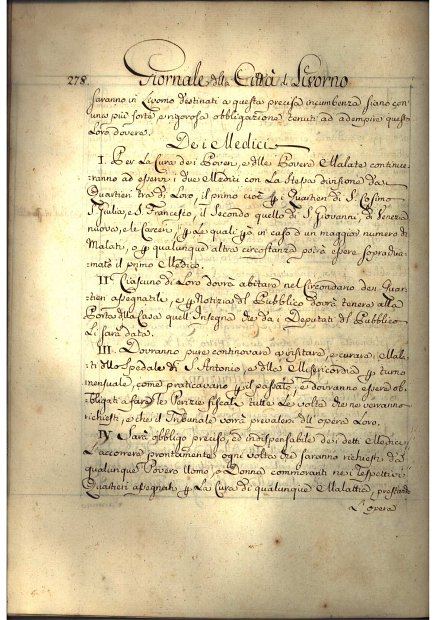 278. Giornale della Città di Livorno
saranno in Livorno destinati a questa precisa incumbenza siano con
una più forte e rigorosa obbligazione tenuti ad adempire questo
Loro dovere.
Dei Medici
I. Per La Cura dei Poveri, e delle Povere Malate continue-
ranno ad esservi i due Medici con La stessa divisione dei
Quartieri tra di Loro, il primo cioè per i Quartieri di S. Cosimo
S. Giulia, e S. Francesco, il Secondo quello di S. Giovanni, di Venezia
nuova, e le Carceri per Le quali però in caso d'un maggior numero di
Malati, o per qualunque altra circostanza potrà essere sopradua-
mato il primo Medico.
II Ciascuno di Loro dovrà abitare nel Circondario dei Quar-
tieri assegnatili, e per Notizia del Pubblico dovrà tenere alla
Porta della Casa quell'Insegna che da i Deputati del Pubblico
Li sarà data.
III. Dovranno pure continovare a visitare, e curare i Mala-
ti dello Spedale di S. Antonio, e della Misericordia per turno
mensuale, come praticavano per il passato, e dovranno essere ob-
bligati a fare le Perizie fiscali tutte Le volte che ne verranno
richiesti, e che il Tribunale vorrà prevalersi dell'opera Loro.
IV Sarà obbligo preciso, ed indispensabile dei detti Medici
L'accorrere prontamente ogni volta che saranno richiesti da
qualunque Povero Uomo, o Donna commoranti nei respettivi
Quartieri assegnati per La Cura di qualunque Malattia, prestando
L'opera